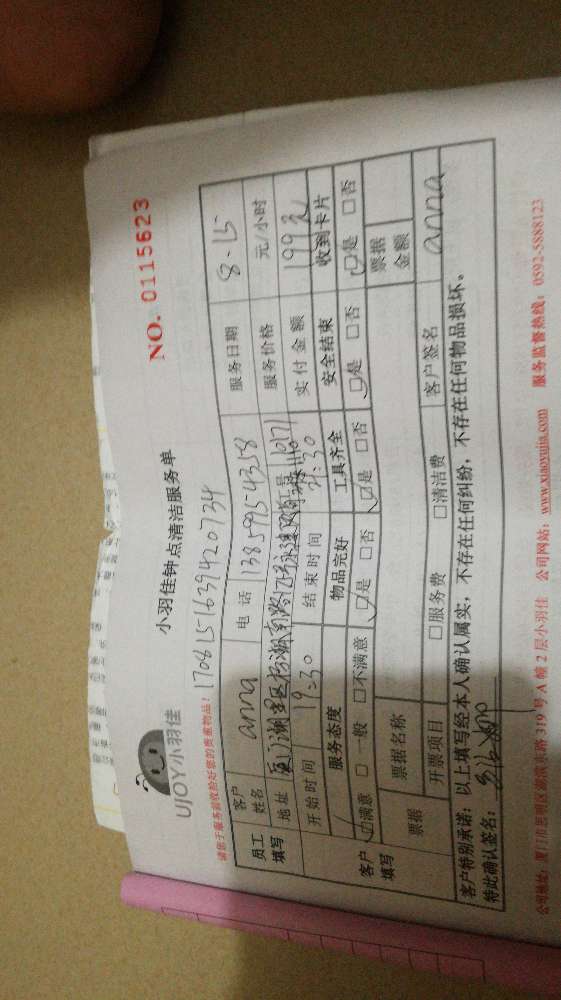 UJOY小羽佳
小羽佳钟点清洁服务单
NO. 0115623
请您于服务前收捡好您的贵重物品！
170815163942 0734
员工填写
客户姓名 anna 电话 13859954358 服务日期 8.15
地址 湖里区 服务价格 元/小时
开始时间 19:30 结束时间 21:30 实付金额 199元
客户填写
服务态度 物品完好 工具齐全 安全结束 收到卡片
☑满意 □一般 □不满意 ☑是 □否 ☑是 □否 ☑是 □否 ☑是 □否
票据 票据名称 票据金额
开票项目 □服务费 □清洁费 客户签名 anna
客户特别承诺：以上填写经本人确认属实，不存在任何纠纷，不存在任何物品损坏。
特此确认签名：
公司地址：厦门市思明区湖滨南路 319 号 A 幢 2 层小羽佳 公司网站：www.xiaoyujia.com 服务监督热线：0592-5888123